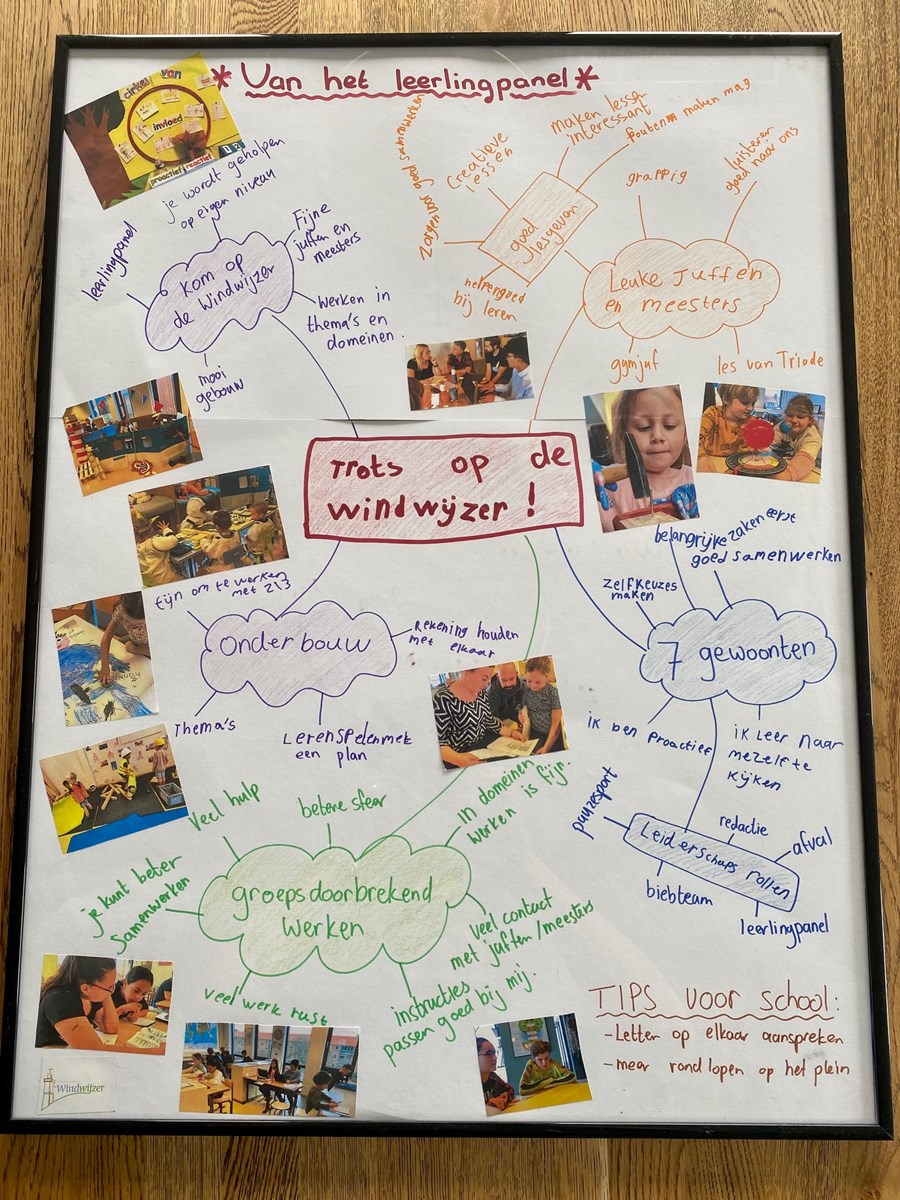 * Van het leerlingpanel *
cirkel van
invloed
proactief reactief
je wordt geholpen
op eigen niveau
leerlingpanel
Fijne
juffen en
meesters
Kom op
de Windwijzer
Werken in
thema's en
domeinen.
mooi
gebouw
Zorgen voor goed samenwerken
Creatieve
lessen
maken lessen
interessant
fouten maken mag
goed
lesgeven
helpen goed
bij leren
grappig
luisteren
goed naar ons
Leuke Juffen
en meesters
gymjuf
les van Triode
Trots op de
windwijzer!
fijn om te werken
met 2/3
Onderbouw
Rekening houden
met elkaar
Thema's
Leren spelen met
een plan
belangrijke zaken eerst
goed samenwerken
zelf keuzes
maken
7 gewoonten
ik ben proactief
ik leer naar
mezelf te
kijken
pauzesport
redactie
afval
Leiderschaps rollen
biebteam
leerlingpanel
Veel hulp
betere sfeer
in domeinen
werken is fijn.
je kunt beter
Samenwerken
groepsdoorbrekend
Werken
veel contact
met juffen/meesters
veel werk rust
instructies
passen goed bij mij.
TIPS voor school:
-Letten op elkaar aanspreken
-meer rond lopen op het plein
Windwijzer